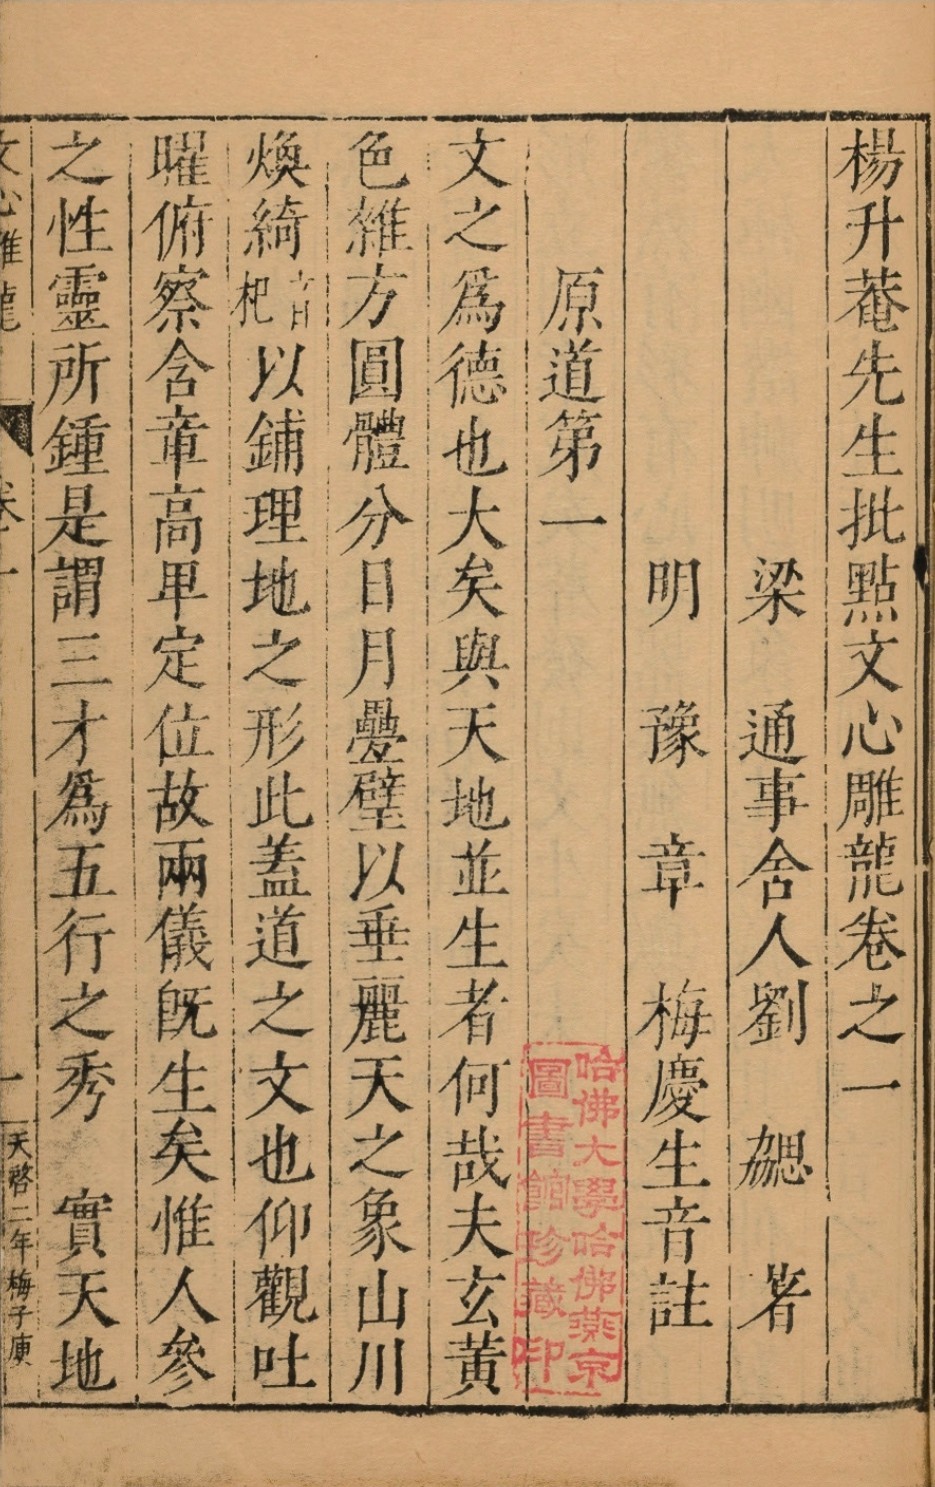 楊升菴先生批點文心雕龍卷之一
梁 通事舍人劉 勰 著
明 豫 章 梅慶生音註
原道第一
文之爲德也大矣與天地並生者何哉夫玄黃
色雜方圓體分日月疊璧以垂麗天之象山川
煥綺音杞以鋪理地之形此葢道之文也仰觀吐
曜俯察含章高卑定位故兩儀旣生矣惟人參
之性靈所鍾是謂三才爲五行之秀 實天地
文心雕龍 卷一 一 天啓二年梅子庾
哈佛大學哈佛燕京
圖書館珍藏印